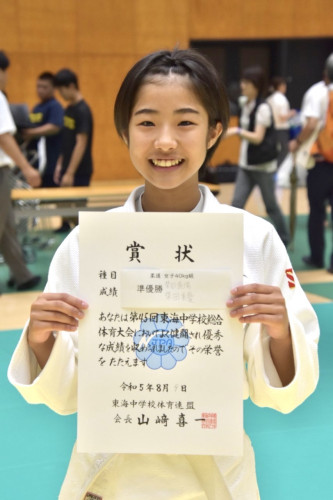 賞状
種目 柔道 女子40kg級
成績 準優勝
あなたは第45回東海中学校総合
体育大会において健闘され優秀
な成績を収めましたのでその栄誉
をたたえます
令和5年8月 日
東海中学校体育連盟
会長 山﨑喜一